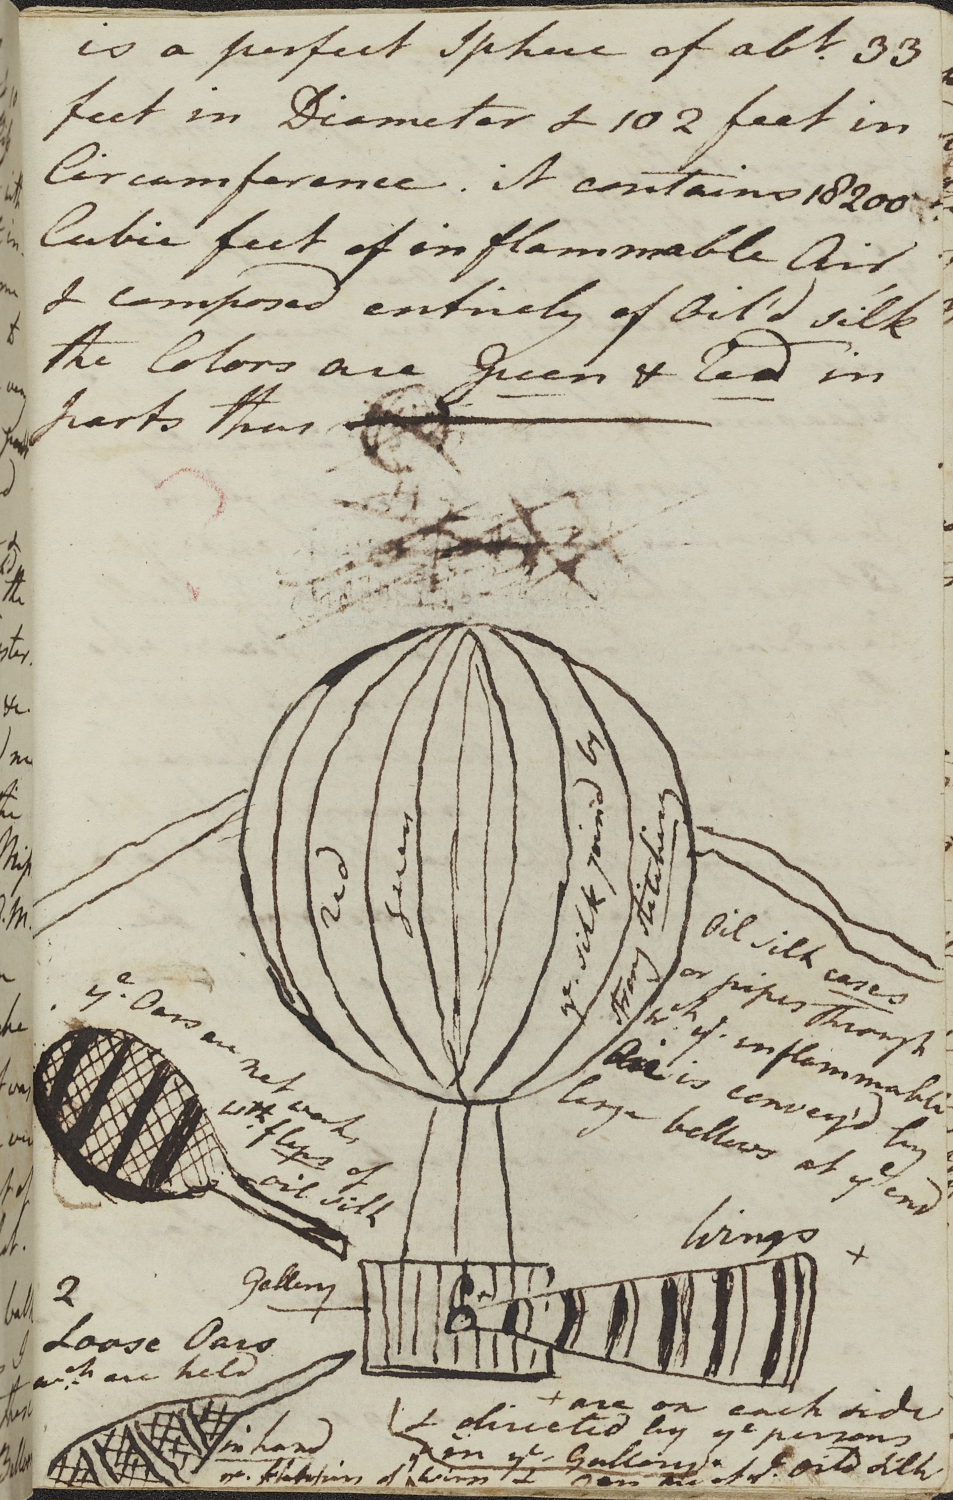 is a perfect Sphere of abt. 33
feet in Diameter & 102 feet in
Circumference. it contains 18200
Cubic feet of inflammable Air
& composed entirely of Oil'd silk
the Colors are Green & Red in
parts thus
red
green
ye. silk joind by
strong stitching
Oil silk cases
or pipes through
wch. ye. inflammable
Air is convey'd by
large bellows at ye end
ye. Oars are net work
with flaps of
oil silk
Wings +
Gallery
2
Loose Oars
wch. are held
in hand
+ are on each side
& directed by ye persons
in ye. Gallery.